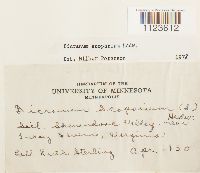 1123612
Dicranum scoparium Hedw.
Det. Wilbur Peterson 197
HERBARIUM OF THE
UNIVERSITY OF MINNESOTA
MINNEAPOLIS
Dicranum Scoparium (L.)
Hedw.
Soil. Shenandoah Valley, near
Luray Caverns, Virginia
Coll Ruth Sterling Apr. 1930